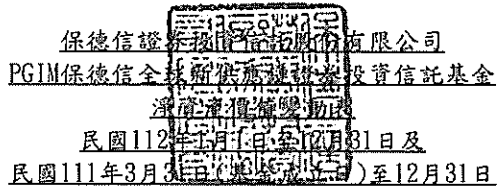 保德信證券投資信託股份有限公司
PGIM保德信全球新供應鏈證券投資信託基金
淨資產價值變動表
民國112年1月1日至12月31日及
民國111年3月31日(基金成立日)至12月31日